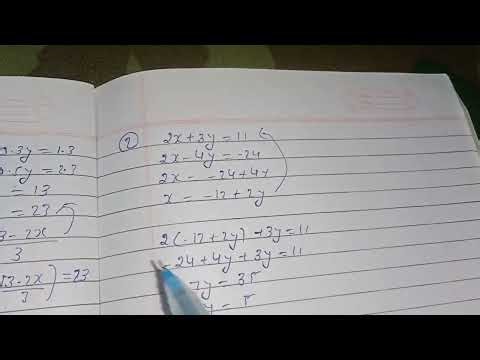 9.3y = 1.3
0.5y = 2.3
= 13
= 23
3 - 2x
3
(23 - 2x / 3) = 23
② 2x + 3y = 11
2x - 4y = -24
2x = -24 + 4y
x = -12 + 2y
2(-12 + 2y) + 3y = 11
-24 + 4y + 3y = 11
7y = 35
y = 5